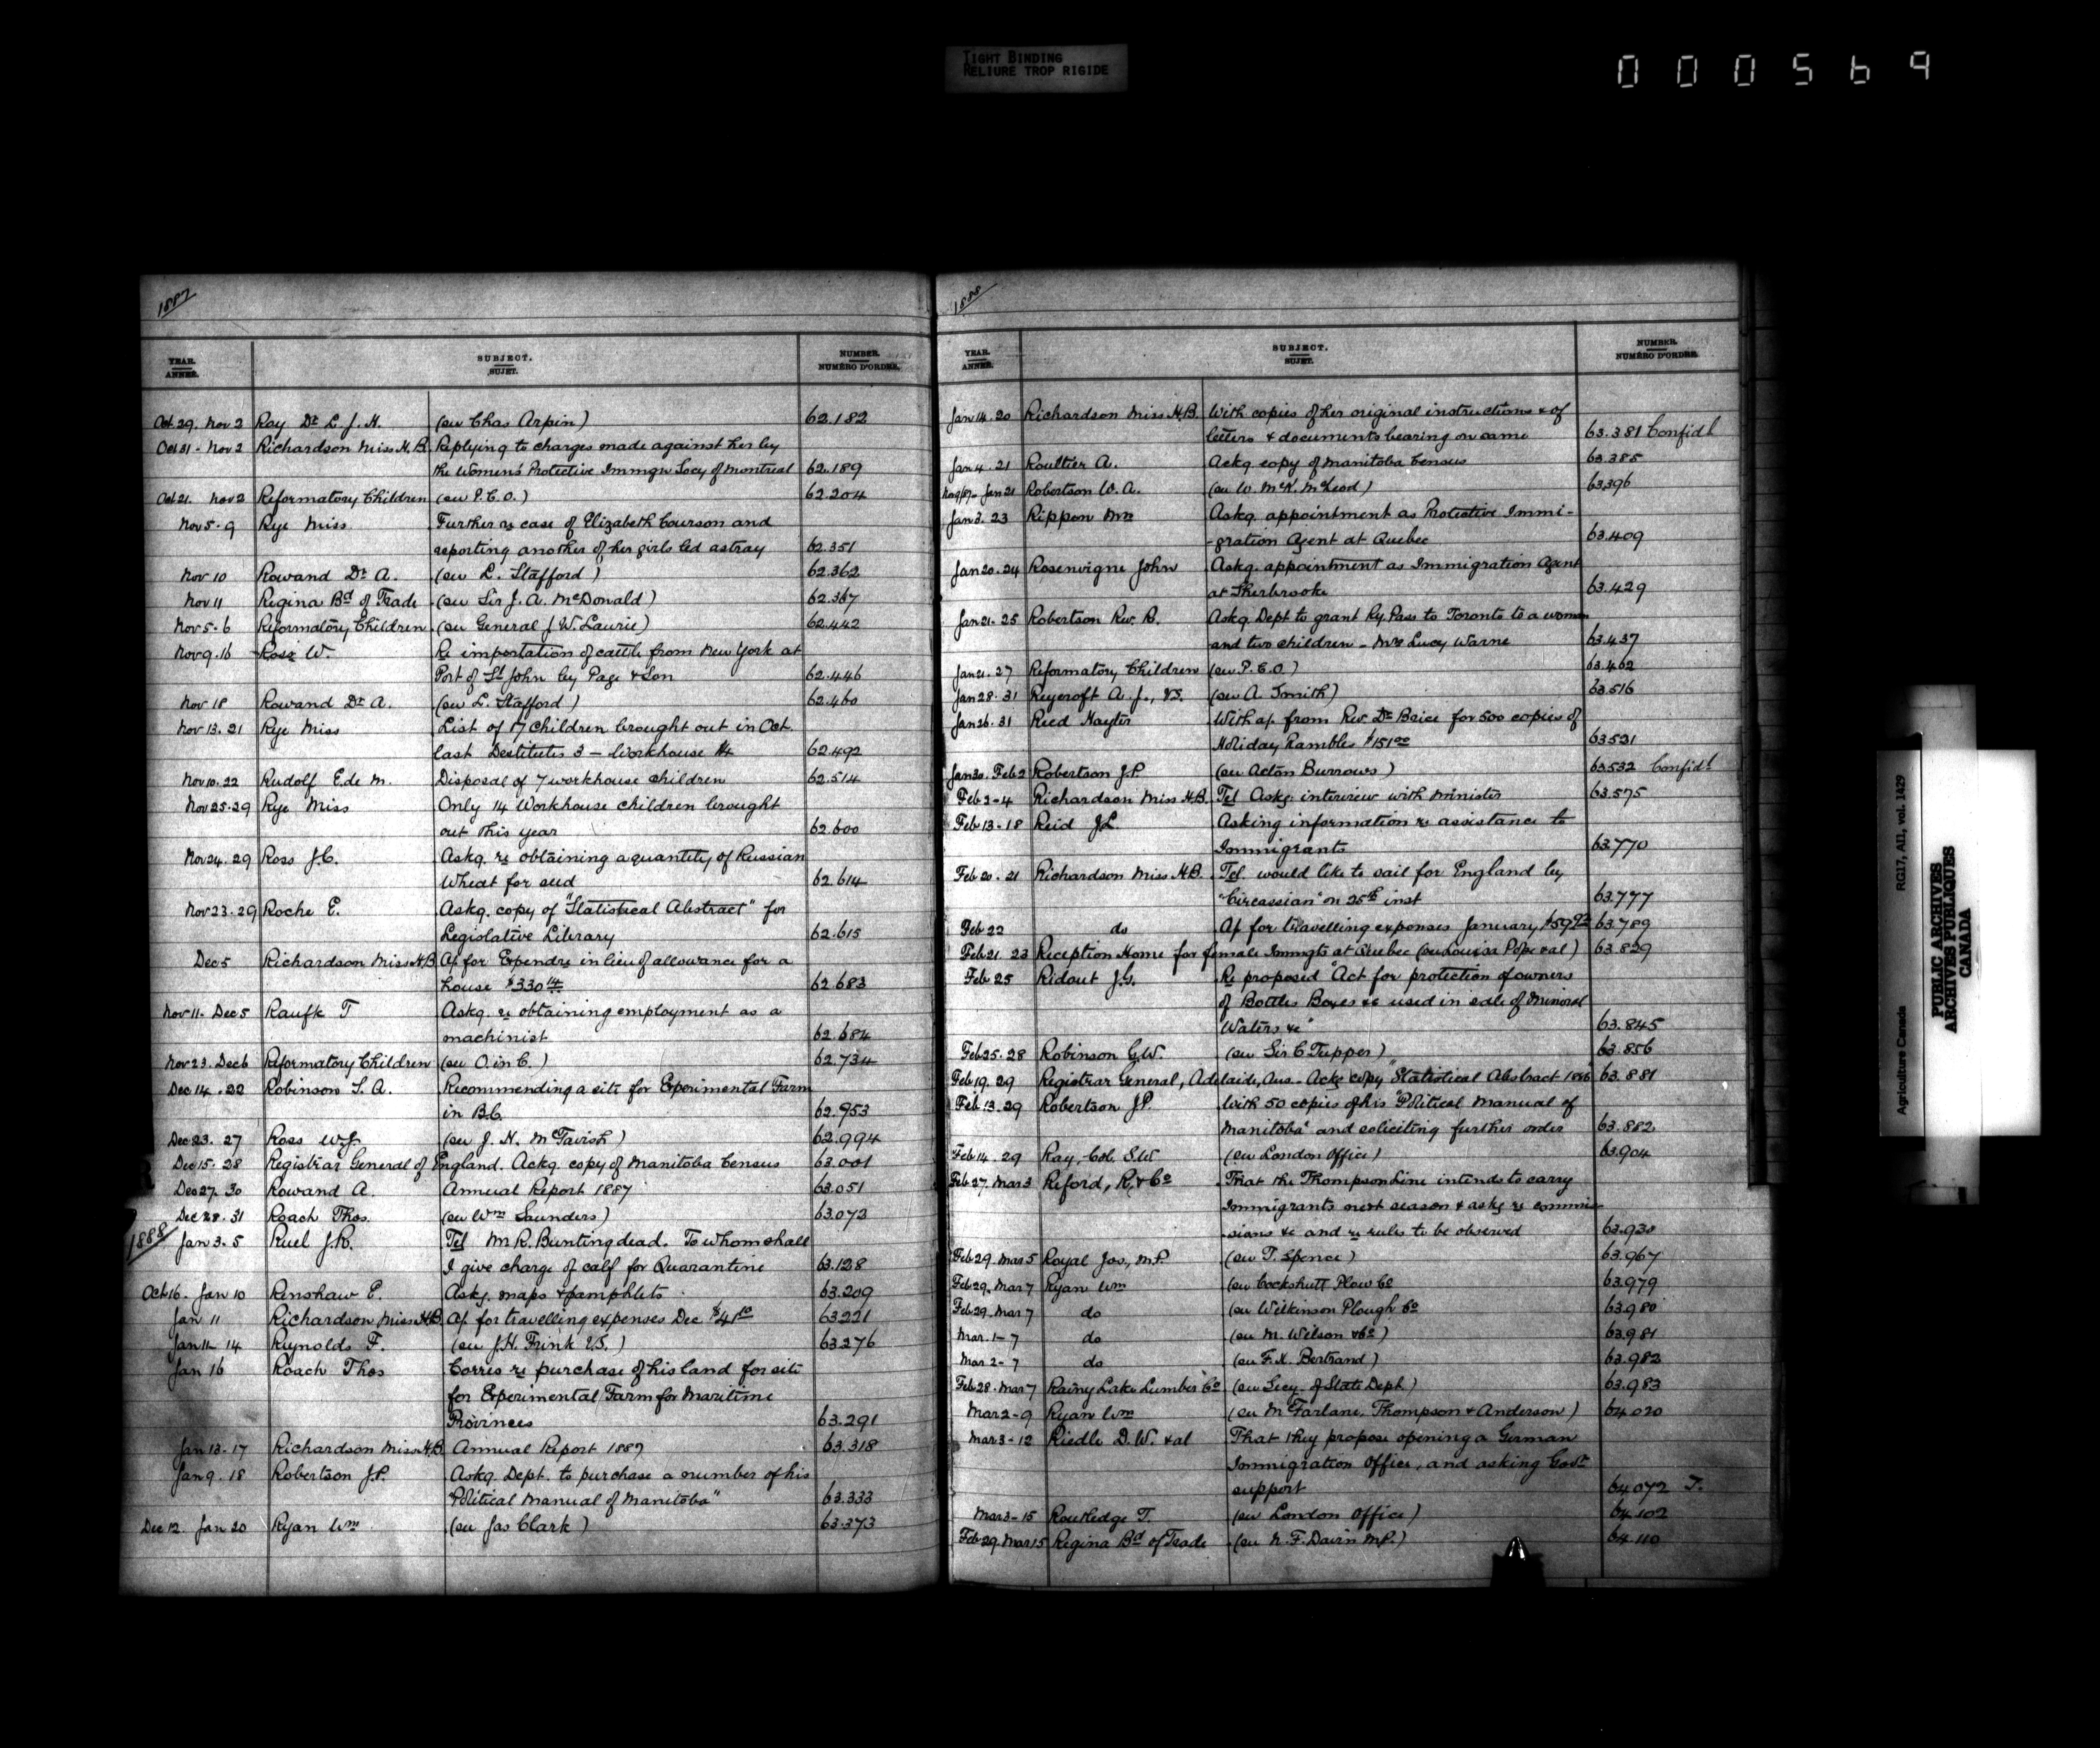 TIGHT BINDING
RELIURE TROP RIGIDE
000569
1887
YEAR. ANNÉE. SUBJECT. SUJET. NUMBER. NUMÉRO D'ORDRE.
Oct 29. Nov 2 Roy Dr L. J. H. (see Chas Arpin) 62.182
Oct 31 - Nov 2 Richardson Miss H.B. Replying to charges made against her by
the Womens' Protective Immgn Socy of Montreal 62.189
Oct 21. Nov 2 Reformatory Children (see P.C.O.) 62.204
Nov 5 - 9 Rye Miss Further re case of Elizabeth Courson and
reporting another of her girls led astray 62.351
Nov 10 Rowand Dr A. (see L. Stafford) 62.362
Nov 11 Regina Bd of Trade (see Sir J. A. McDonald) 62.367
Nov 5 - 6 Reformatory Children (see General J. W. Laurie) 62.442
Nov 9. 16 Ross W. Re importation of cattle from New York at
Port of St John by Page & Son 62.446
Nov 18 Rowand Dr A. (see L. Stafford) 62.460
Nov 13. 21 Rye Miss List of 17 children brought out in Oct.
last Destitutes 3 - Workhouse 14 62.492
Nov 10. 22 Rudolf E. de M. Disposal of 7 workhouse children 62.514
Nov 25 - 29 Rye Miss Only 14 Workhouse children brought
out this year 62.600
Nov 24. 29 Ross J.C. Askg. re obtaining a quantity of Russian
Wheat for seed 62.614
Nov 23 - 29 Roche E. Askg. copy of "Statistical Abstract" for
Legislative Library 62.615
Dec 5 Richardson Miss H.B. A/c for Expendre in lieu of allowance for a
house $330 14 62.683
Nov 11 - Dec 5 Raufk T Askg. re obtaining employment as a
machinist 62.684
Nov 23. Dec 6 Reformatory Children (see O. in C.) 62.734
Dec 14. 22 Robinson T. A. Recommending a site for Experimental Farm
in B.C. 62.953
Dec 23. 27 Ross W.J. (see J. N. McTavish) 62.994
Dec 15 - 28 Registrar General of England. Ackg. copy of Manitoba Census 63.001
Dec 27. 30 Rowand A. Annual Report 1887 63.051
Dec 28. 31 Roach Thos. (see Wm Saunders) 63.073
1888
Jan 3. 5 Ruel J.R. Tel. M. R. Bunting dead. To whom shall
I give charge of calf for Quarantine 63.128
Oct 16. Jan 10 Renshaw E. Askg. maps & pamphlets 63.209
Jan 11 Richardson Miss H.B. A/c for travelling expenses Dec. $41 10 63.221
Jan 11 - 14 Reynolds F. (see J.H. Frink V.S.) 63.276
Jan 16 Roach Thos Corres re purchase of his land for site
for Experimental Farm for Maritime
Provinces 63.291
Jan 13 - 17 Richardson Miss H.B. Annual Report 1887 63.318
Jan 9. 18 Robertson J.P. Askg. Dept. to purchase a number of his
"Political Manual of Manitoba" 63.333
Dec 12. Jan 20 Ryan Wm (see Jas Clark) 63.373
1888
YEAR. ANNÉE. SUBJECT. SUJET. NUMBER. NUMÉRO D'ORDRE.
Jan 14. 20 Richardson Miss H.B. With copies of her original instructions & of
letters & documents bearing on same 63.381 Confidl
Jan 4. 21 Roultier A. Ackg copy of Manitoba Census 63.385
Nov 9/87 - Jan 21 Robertson W. A. (see W. McK. McLeod) 63396
Jan 3. 23 Rippon Mrs Askg. appointment as Protective Immi-
-gration Agent at Quebec 63.409
Jan 20. 24 Rosenvigne John Askg. appointment as Immigration Agent
at Sherbrooke 63.429
Jan 21 - 25 Robertson Rev. R. Askg Dept to grant Ry. Pass to Toronto to a woman
and two children - Mrs Lucy Warne 63.437
Jan 21. 27 Reformatory Children (see P.C.O.) 63.462
Jan 28. 31 Ruycroft A. J., V.S. (see A. Smith) 63.516
Jan 26. 31 Reed Hayter With a/c from Rev. Dr Brice for 500 copies of
Holiday Rambles $151 00 63521
Jan 30. Feb 2 Robertson J.P. (see Acton Burrows) 63.532 Confidl
Feb 2 - 4 Richardson Miss H.B. Tel Askg. interview with Minister 63.575
Feb 13 - 18 Reid J.L. Asking information re assistance to
Immigrants 63.770
Feb 20. 21 Richardson Miss H.B. Tel. would like to sail for England by
"Circassian" on 25th inst 63.777
Feb 22 do A/c for travelling expenses January, $59 63.789
Feb 21. 23 Reception Home for female Immgts at Quebec (see Louisa Pope & al) 63.829
Feb 25 Ridout J.G. Re proposed "Act for protection of owners
of Bottles Boxes &c used in sale of Mineral
Waters &c" 63.845
Feb 25. 28 Robinson G.W. (see Sir C Tupper) 63.856
Feb 19. 29 Registrar General, Adelaide, Aus. - Ackg copy "Statistical Abstract 1886" 63.881
Feb 13. 29 Robertson J.P. With 50 copies of his "Political Manual of
Manitoba" and soliciting further order 63.882
Feb 14. 29 Ray, Col. S.W. (see London Office) 63.904
Feb 27. Mar 3 Reford, R. & Co That the Thompson Line intends to carry
Immigrants next season & askg re commis-
sions &c and re rules to be observed 63.930
Feb 29. Mar 5 Royal Jos, M.P. (see T. Spence) 63.967
Feb 29. Mar 7 Ryan Wm (see Cockshutt Plow Co 63.979
Feb 29. Mar 7 do (see Wilkinson Plough Co 63.980
Mar. 1 - 7 do (see M. Wilson & Co) 63.981
Mar 2 - 7 do (see F. X. Bertrand) 63.982
Feb 28. Mar 7 Rainy Lake Lumber Co (see Secy. of State Dept) 63.983
Mar 2 - 9 Ryan Wm (see McFarlane, Thompson & Anderson) 64.020
Mar 3 - 12 Riedle D. W. & al That they propose opening a German
Immigration Office, and asking Govt
support 64.072 T.
Mar 3 - 15 Routledge T. (see London Office) 64.102
Feb 29. Mar 15 Regina Bd of Trade (see N. F. Davin M.P.) 64.110
Agriculture Canada RG17, AII, vol. 1429
PUBLIC ARCHIVES
ARCHIVES PUBLIQUES
CANADA